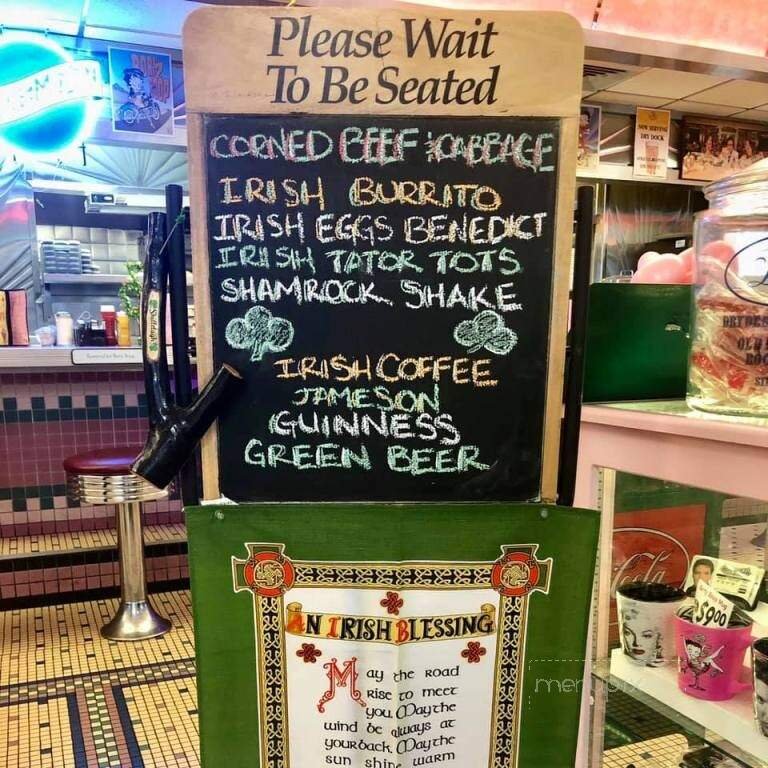 Please Wait
To Be Seated
CORNED BEEF & CABBAGE
IRISH BURRITO
IRISH EGGS BENEDICT
IRISH TATOR TOTS
SHAMROCK SHAKE
IRISH COFFEE
JAMESON
GUINNESS
GREEN BEER
AN IRISH BLESSING
May the ROAD
RISE TO MEET
you. May the
wind be always at
your back. May the
sun shine warm
NOW SERVING
DRY DOCK
Cola
$9.00
menupix